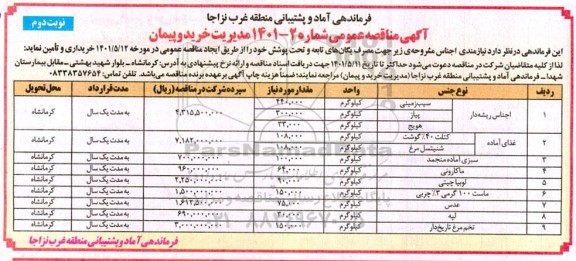 فرماندهی آماد و پشتیبانی منطقه غرب نزاجا
نوبت دوم
آگهی مناقصه عمومی شماره ۲-۱۴۰۱ مدیریت خرید و پیمان
این فرماندهی در نظر دارد نیازمندی اجناس مشروحه‌ی زیر جهت مصرف یگان‌های تابعه و تحت پوشش خود را از طریق ایجاد مناقصه عمومی در مورخه ۱۴۰۱/۵/۱۲ خریداری و تأمین نماید:
لذا از کلیه متقاضیان شرکت در مناقصه دعوت می‌شود حداکثر تا تاریخ ۱۴۰۱/۵/۱۱ جهت دریافت اسناد مناقصه و ارائه نرخ پیشنهادی به آدرس: کرمانشاه ـ بلوار شهید بهشتی ـ مقابل بیمارستان
شهدا ـ فرماندهی آماد و پشتیبانی منطقه غرب نزاجا (مدیریت خرید و پیمان) مراجعه نمایند؛ ضمناً هزینه چاپ آگهی بر عهده برنده مناقصه می‌باشد. تلفن تماس: ۰۸۳۳۸۳۵۷۶۵۴
ردیف نوع جنس واحد مقدار مورد نیاز سپرده شرکت در مناقصه (ریال) مدت قرارداد محل تحویل
۱ اجناس ریشه‌دار سیب‌زمینی کیلوگرم ۴۴۰,۰۰۰ ۴,۳۱۵,۵۰۰,۰۰۰ به مدت یک سال کرمانشاه
پیاز کیلوگرم ۳۰۰,۰۰۰
هویج کیلوگرم ۳۳,۰۰۰
۲ غذای آماده کتلت ۴۰٪ گوشت کیلوگرم ۱۰۸,۰۰۰ ۷,۱۸۲,۰۰۰,۰۰۰ به مدت یک سال کرمانشاه
شنیتسل مرغ کیلوگرم ۱۰۸,۰۰۰
۳ سبزی آماده منجمد کیلوگرم ۱۰۰,۰۰۰ ۷۰۰,۰۰۰,۰۰۰ به مدت یک سال کرمانشاه
۴ ماکارونی کیلوگرم ۹۶۰,۰۰۰,۰۰۰ به مدت یک سال کرمانشاه
۵ لوبیا چیتی کیلوگرم ۹۰,۰۰۰ ۲,۲۵۰,۰۰۰,۰۰۰ به مدت یک سال کرمانشاه
۶ ماست ۱۰۰ گرمی ۳٪ چربی کیلوگرم ۱,۵۰۰,۰۰۰,۰۰۰ به مدت یک سال کرمانشاه
۷ عدس کیلوگرم ۷۵,۰۰۰ ۱,۶۱۲,۵۰۰,۰۰۰ به مدت یک سال کرمانشاه
۸ لپه کیلوگرم ۶۹۰,۰۰۰,۰۰۰ به مدت یک سال کرمانشاه
۹ تخم مرغ تاریخ‌دار کیلوگرم ۱۵۰,۰۰۰ ۳,۰۰۰,۰۰۰,۰۰۰ به مدت یک سال کرمانشاه
فرماندهی آماد و پشتیبانی منطقه غرب نزاجا